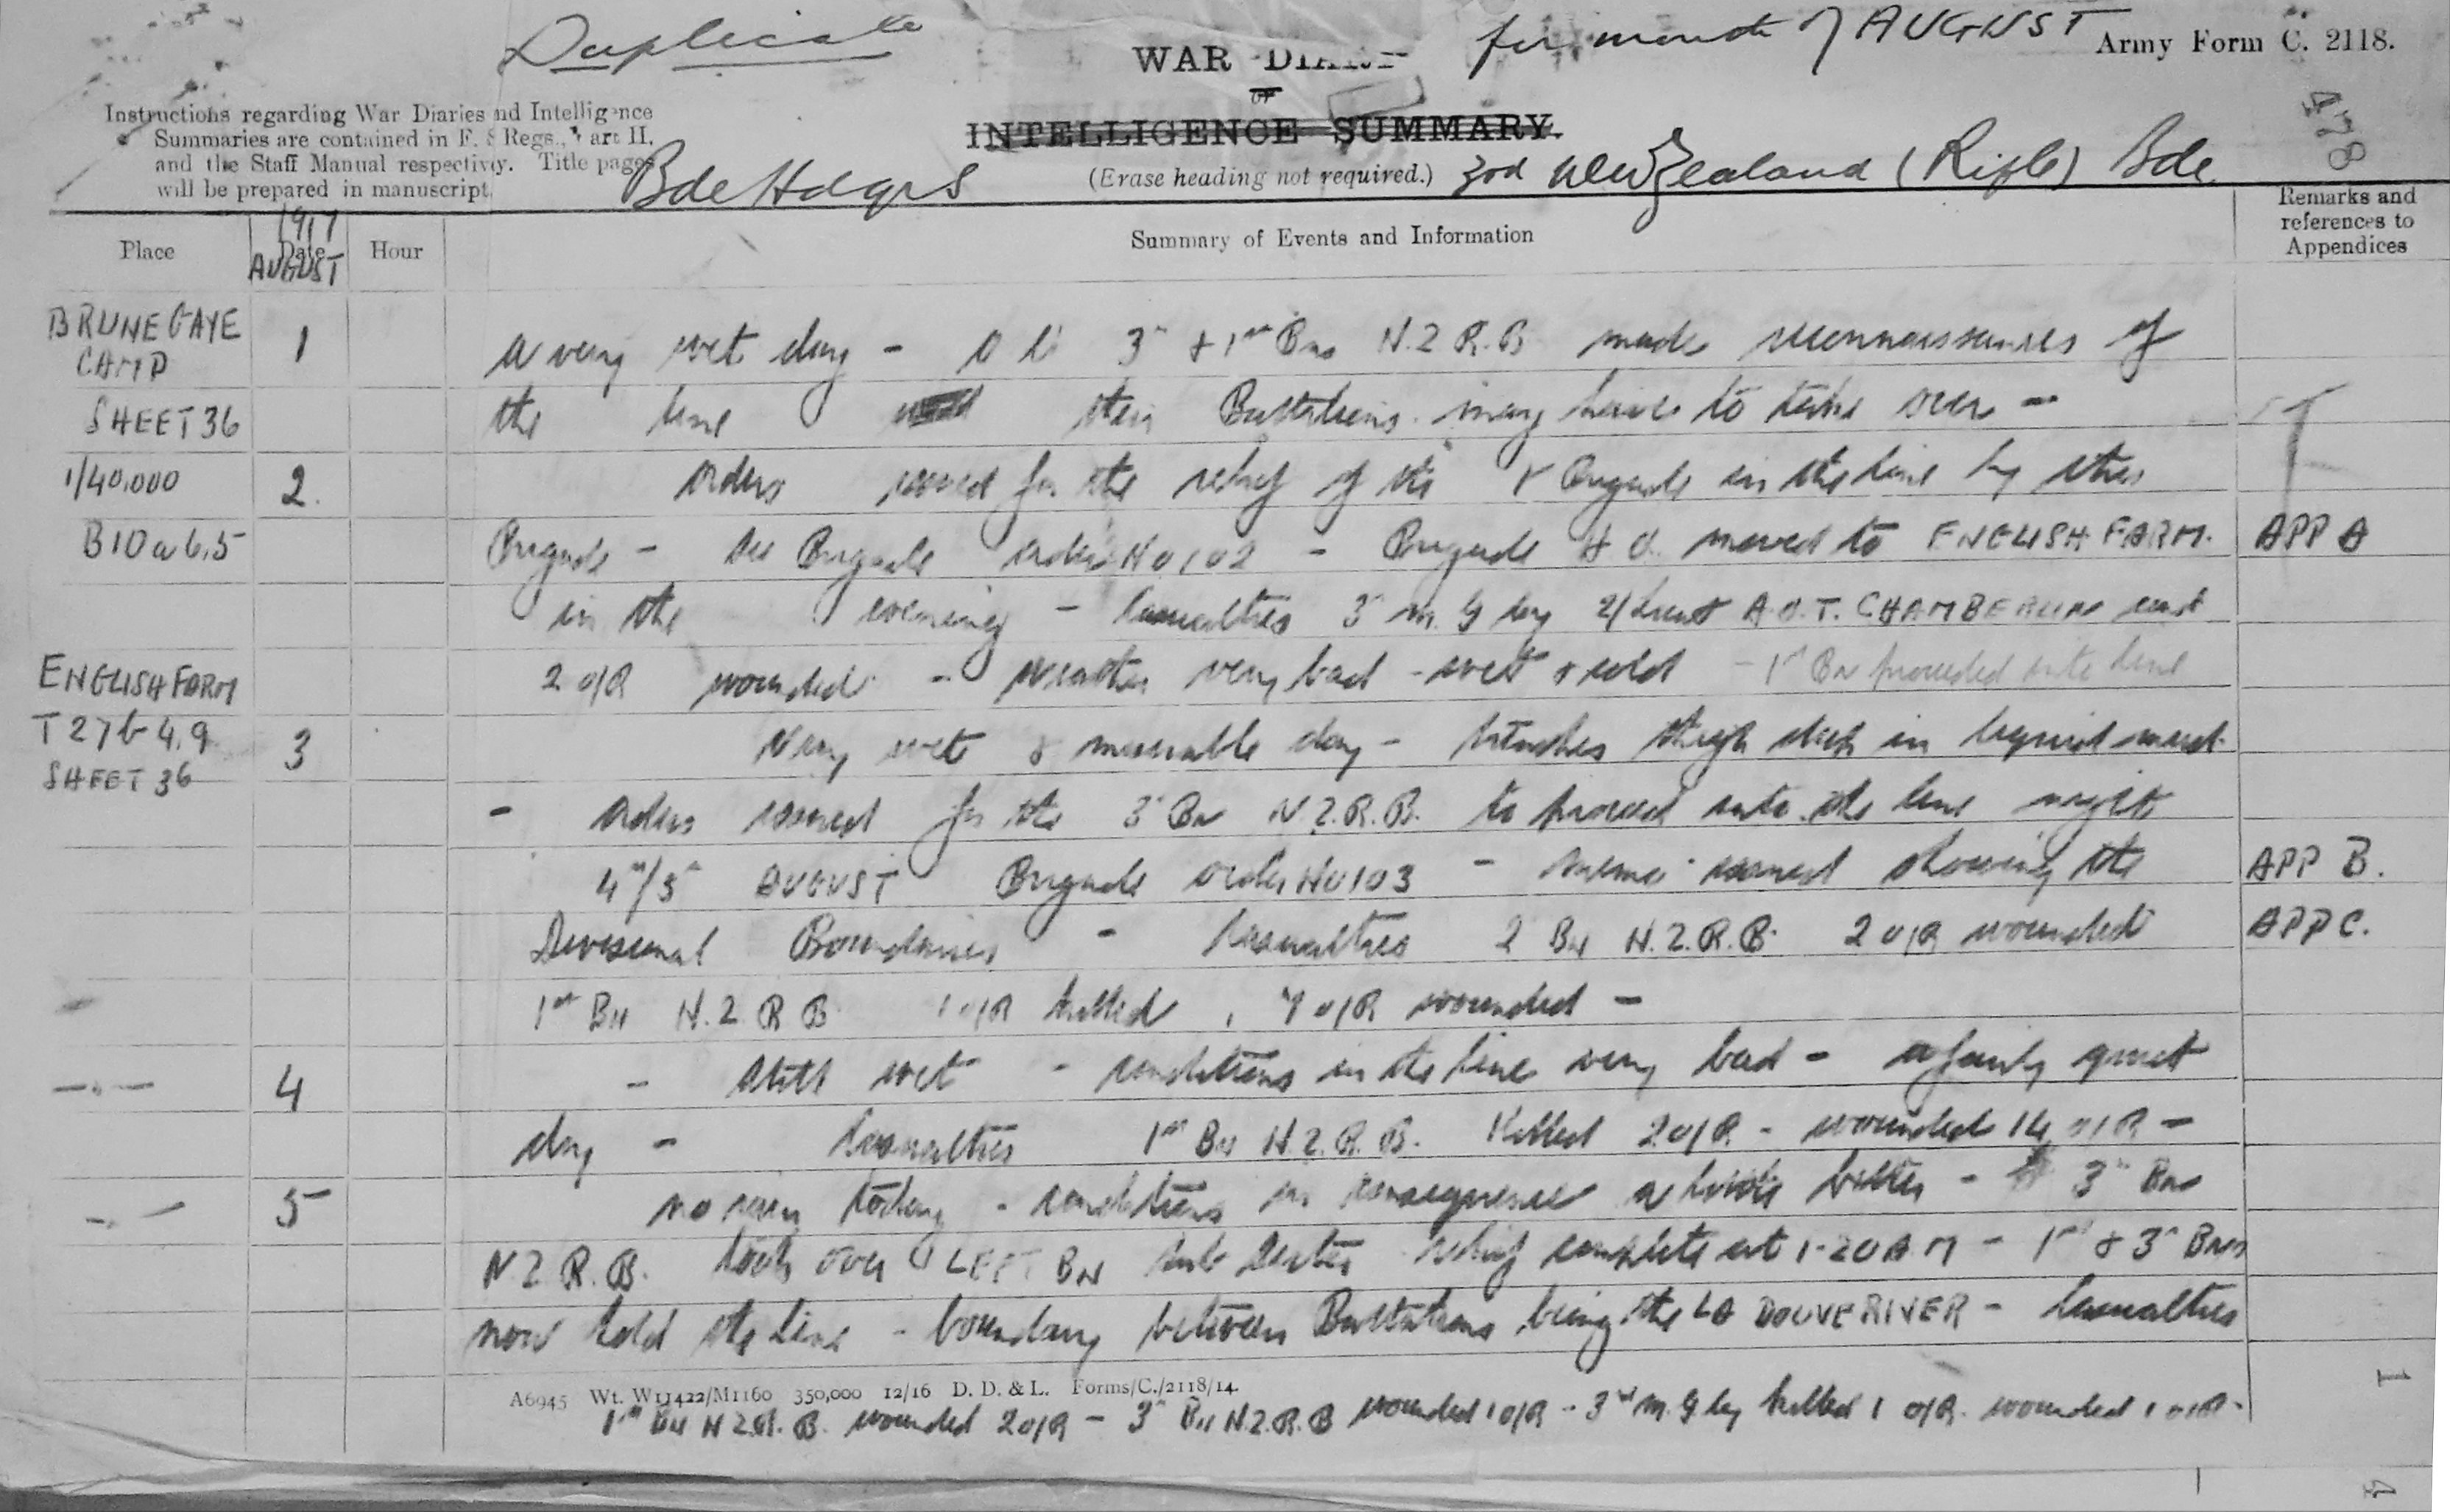 Duplicate
WAR DIARY for month of AUGUST Army Form C. 2118.
OR
INTELLIGENCE SUMMARY.
478
Instructions regarding War Diaries and Intelligence
Summaries are contained in F. S Regs., Part II.
and the Staff Manual respectively. Title pages
will be prepared in manuscript.
Bde Hdqrs (Erase heading not required.) 3rd New Zealand (Rifle) Bde
Place 1917 Date AUGUST Hour Summary of Events and Information Remarks and references to Appendices
BRUNE GAYE CAMP 1 A very wet day - 3rd + 1st Bns N.Z.R.B made reconnaissances of
SHEET 36 the line their Battalions may have to take over -
1/40,000 2. Orders issued for the relief of the Brigade in the line by this
B10a6.5 Brigade - see Brigade order No 102 - Brigade H.Q. moved to ENGLISH FARM. APP A
in the evening - Casualties 3rd M.G Coy 2/Lieut A.O.T. CHAMBERLIN and
ENGLISH FARM 2 O/R wounded - weather very bad - wet & cold - 1st Bn proceeded into line
T27b4.9 3 Very wet & miserable day - trenches thigh deep in liquid mud.
SHEET 36
- Orders issued for the 3rd Bn N.Z.R.B. to proceed into the line night
4th/5th AUGUST Brigade order No 103 - memo issued showing the APP B.
Divisional Boundaries - Casualties 2 Bn N.Z.R.B. 2 O/R wounded APP C.
1st Bn N.Z.R.B. 1 O/R killed, 7 O/R wounded -
-"- 4 - Still wet - conditions in the line very bad - a fairly quiet
day - Casualties 1st Bn N.Z.R.B. Killed 2 O/R - wounded 14 O/R -
-"- 5 no rain today - conditions in consequence a little better - 3rd Bn
N.Z.R.B. took over LEFT BN sub sector relief complete at 1-20 A.M - 1st & 3rd Bns
now hold the line - boundary between Battalions being the LA DOUVE RIVER - Casualties
A6945 Wt. W11422/M1160 350,000 12/16 D. D. & L. Forms/C./2118/14.
1st Bn N.Z.R.B. wounded 2 O/R - 3rd Bn N.Z.R.B wounded 1 O/R - 3rd M.G Coy killed 1 O/R. wounded 1 O/R.